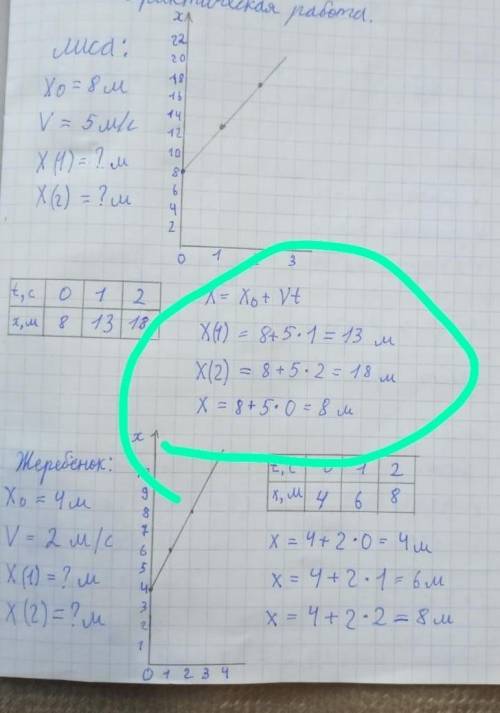 Практическая работа.
Лиса:
X₀ = 8 м
V = 5 м/с
X(1) = ? м
X(2) = ? м
x
22
20
18
16
14
12
10
8
6
4
2
0 1 2 3
t, с 0 1 2
x, м 8 13 18
X = X₀ + Vt
X(1) = 8+5·1 = 13 м
X(2) = 8+5·2 = 18 м
X = 8+5·0 = 8 м
Жеребёнок:
X₀ = 4 м
V = 2 м/с
X(1) = ? м
X(2) = ? м
x
9
8
7
6
5
4
3
2
1
0 1 2 3 4
t, с 0 1 2
x, м 4 6 8
x = 4+2·0 = 4 м
x = 4+2·1 = 6 м
x = 4+2·2 = 8 м